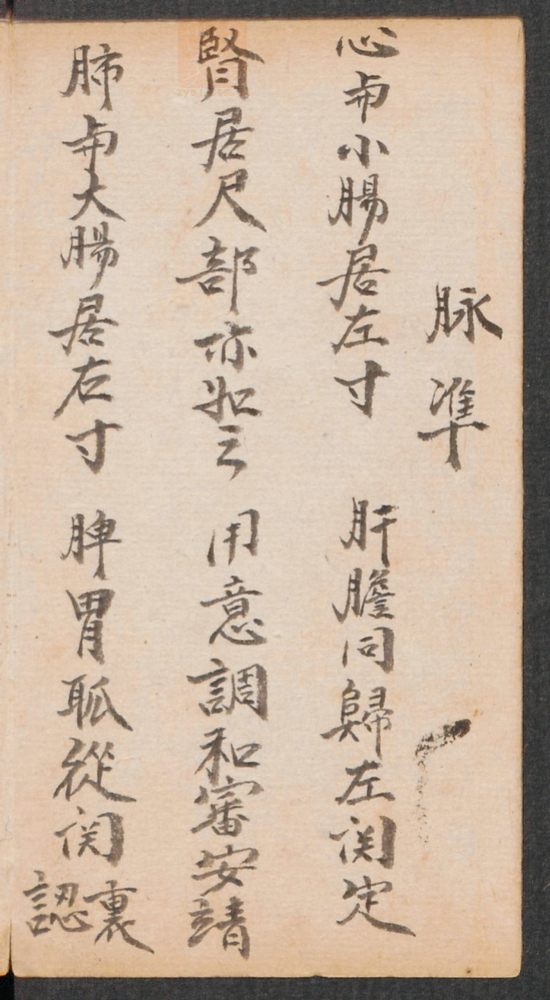 脉準
心与小腸居左寸 肝膽同歸左関定
腎居尺部亦如之 用意調和審安靖
肺与大腸居右寸 脾胃脈從関裏認